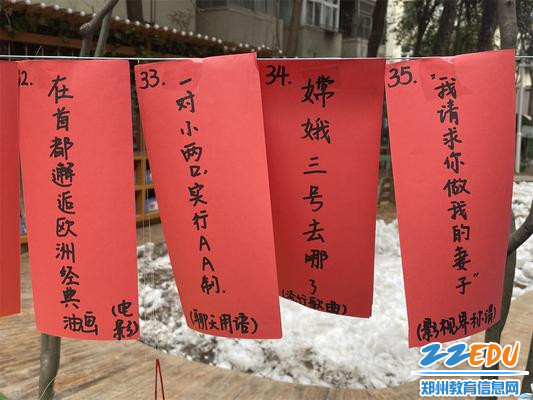 32.
在首都邂逅欧洲经典
油画
(电影)
33.
一对小两口实行AA制.
(聊天用语)
34.
嫦娥三号去哪了
(流行歌曲)
35.
"我请求你做我的妻子"
(影视界称谓)
ZZEDU
郑州教育信息网